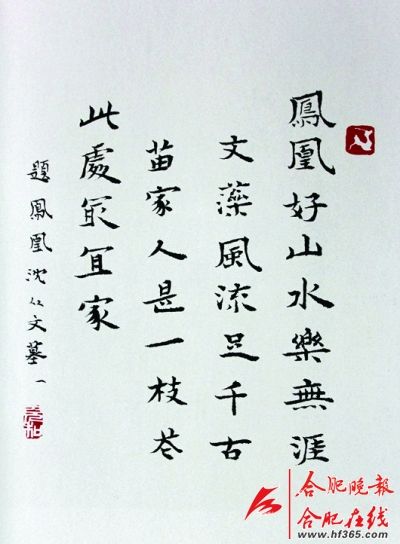 鳳凰好山水樂無涯
文藻風流足千古
苗家人是一枝花
此處最宜家
題鳳凰沈从文墓一
允和
合肥晚報
合肥在线
www.hf365.com